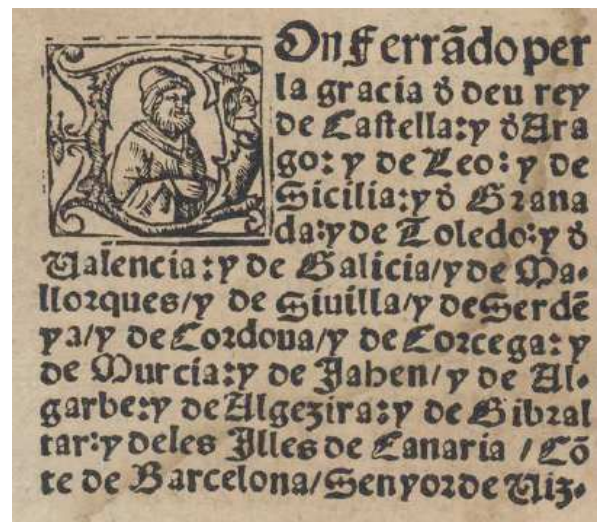 On Ferrãdo per
la gracia đ deu rey
de Castella:y đ Ara
go: y de Leo: y de
Sicilia:y đ Grana
da:y de Toledo:y đ
Ualencia:y de Galicia/y de Ma-
llorques/y de Siuilla/y de Serdẽ
ya/y de Cordoua/y de Corcega: y
de Murcia:y de Jahen/y de Al-
garbe:y de Algezira:y de Gibral
tar:y deles Illes de Canaria / Cõ
te de Barcelona/Senyor de Uiz-